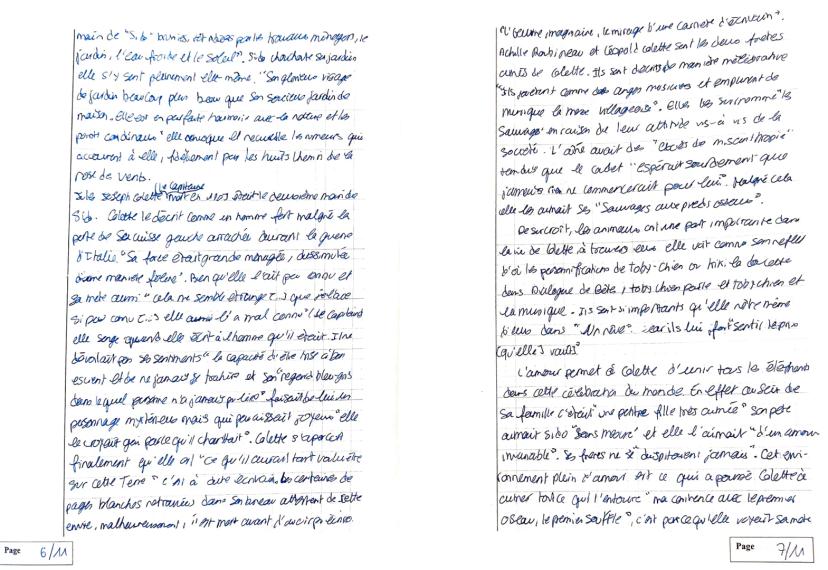 main de "Sido" brunies, et ridées par les travaux ménagers, le
jardin, l'eau froide et le soleil". Sido chérit son jardin
elle s'y sent pleinement elle même, "Son glorieux visage
de jardin beaucoup plus beau que son soucieux jardin de
maison. Elle est en parfaite harmonie avec la nature et les
points cardinaux "elle convoque et recueille les rumeurs qui
accourent à elle, fidèlement par les huits chemin de la
rose de vents.
Le Capitaine
Jules Joseph Colette mort en 1905 était le deuxième mari de
Sido. Colette le décrit comme un homme fort malgré la
perte de sa cuisse gauche arrachée durant la guerre
d'Italie "Sa face était grande ménagée, dissimulée
d'une manière". Bien qu'elle l'ait peu conçu et
sa mère aussi "cela me semble étrange (...) que
si peu connu (...) elle aussi l'a mal connu" Le Capitaine
elle songe quand elle écrit à l'homme qu'il était. Il ne
dévoilait pas ses sentiments "la capacité d'être triste à bon
escient et de ne jamais se trahir" et son "regard bleu-gris
dans lequel personne n'a jamais pu lire" faisait de lui un
personnage mystérieux mais qui paraissait joyeux "elle
le croyait gai parce qu'il chantait". Colette s'aperçoit
finalement qu'elle est "ce qu'il aurait tant voulu être
sur cette Terre" c'est à dire écrivain. Les centaines de
pages blanches retrouvées dans son bureau attestent de cette
envie, malheureusement, il est mort avant d'avoir pu écrire.
Page 6/11
"L'oeuvre, imaginaire, le mirage d'une carrière d'écrivain".
Achille Robineau et Léopold Colette sont les deux frères
aînés de Colette. Ils sont décrits de manière méliorative
"Ils jouèrent comme des anges musiciens et emplirent de
musique la messe villageoise". Elle les surnomme "les
Sauvages" en raison de leur attitude vis-à vis de la
société. L'aîné avait des "accès de misanthropie"
tandis que le cadet "espérait sourdement que
jamais rien ne commencerait pour lui". Malgré cela
elle les aimait ses "Sauvages aux pieds osseux".
De surcroît, les animaux ont une part importante dans
la vie de Colette à travers eux elle voit comme son reflet
d'où les personnification de Toby-Chien ou Kiki-la-doucette
dans Dialogue de Bête, Toby chien parle et Toby chien et
la musique. Ils sont si importants qu'elle rêve même
d'eux dans "Un rêve". car ils lui font "sentir le prix
(qu'elle) vaut"
L'amour permet à Colette d'unir tous les éléments
dans cette célébration du monde. En effet au sein de
sa famille c'était "une petite fille très aimée" Son père
aimait Sido "sans mesure" et elle l'aimait "d'un amour
invariable". Ses frères ne se "disputaient jamais". Cet envi-
ronnement plein d'amour est ce qui a poussé Colette à
aimer tout ce qui l'entoure "ma connivence avec le premier
oiseau, le premier souffle", c'est parce qu'elle voyait sa mère
Page 7/11